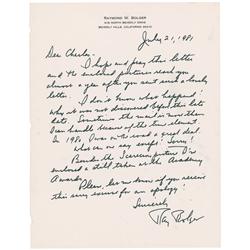 RAYMOND W. BOLGER
618 NORTH BEVERLY DRIVE
BEVERLY HILLS, CALIFORNIA 90210
July 21, 1981
Dear Charles -
I hope and pray this letter
and the enclosed pictures reach you
almost a year after you sent such a lovely
letter.
I don't know what happened!
Why it was not discovered before this late
date. Sometimes the mail is more than
I can handle because of the time element.
In 1980 I was on the road a great deal.
Who can say except! Sorry!
Besides the Scarecrow picture I've
enclosed a still taken at the Academy
Awards.
Please let me know if you receive
this very excuse for an apology!
Sincerely
Ray Bolger